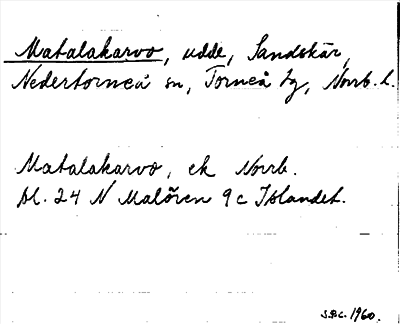 Matalakarvo, udde, Sandskär,
Nedertorneå sn, Torneå tg, Norrb. l.
Matalakarvo, ek Norrb.
bl. 24 N Malören 9 c Islandet.
S.B.C. 1960.